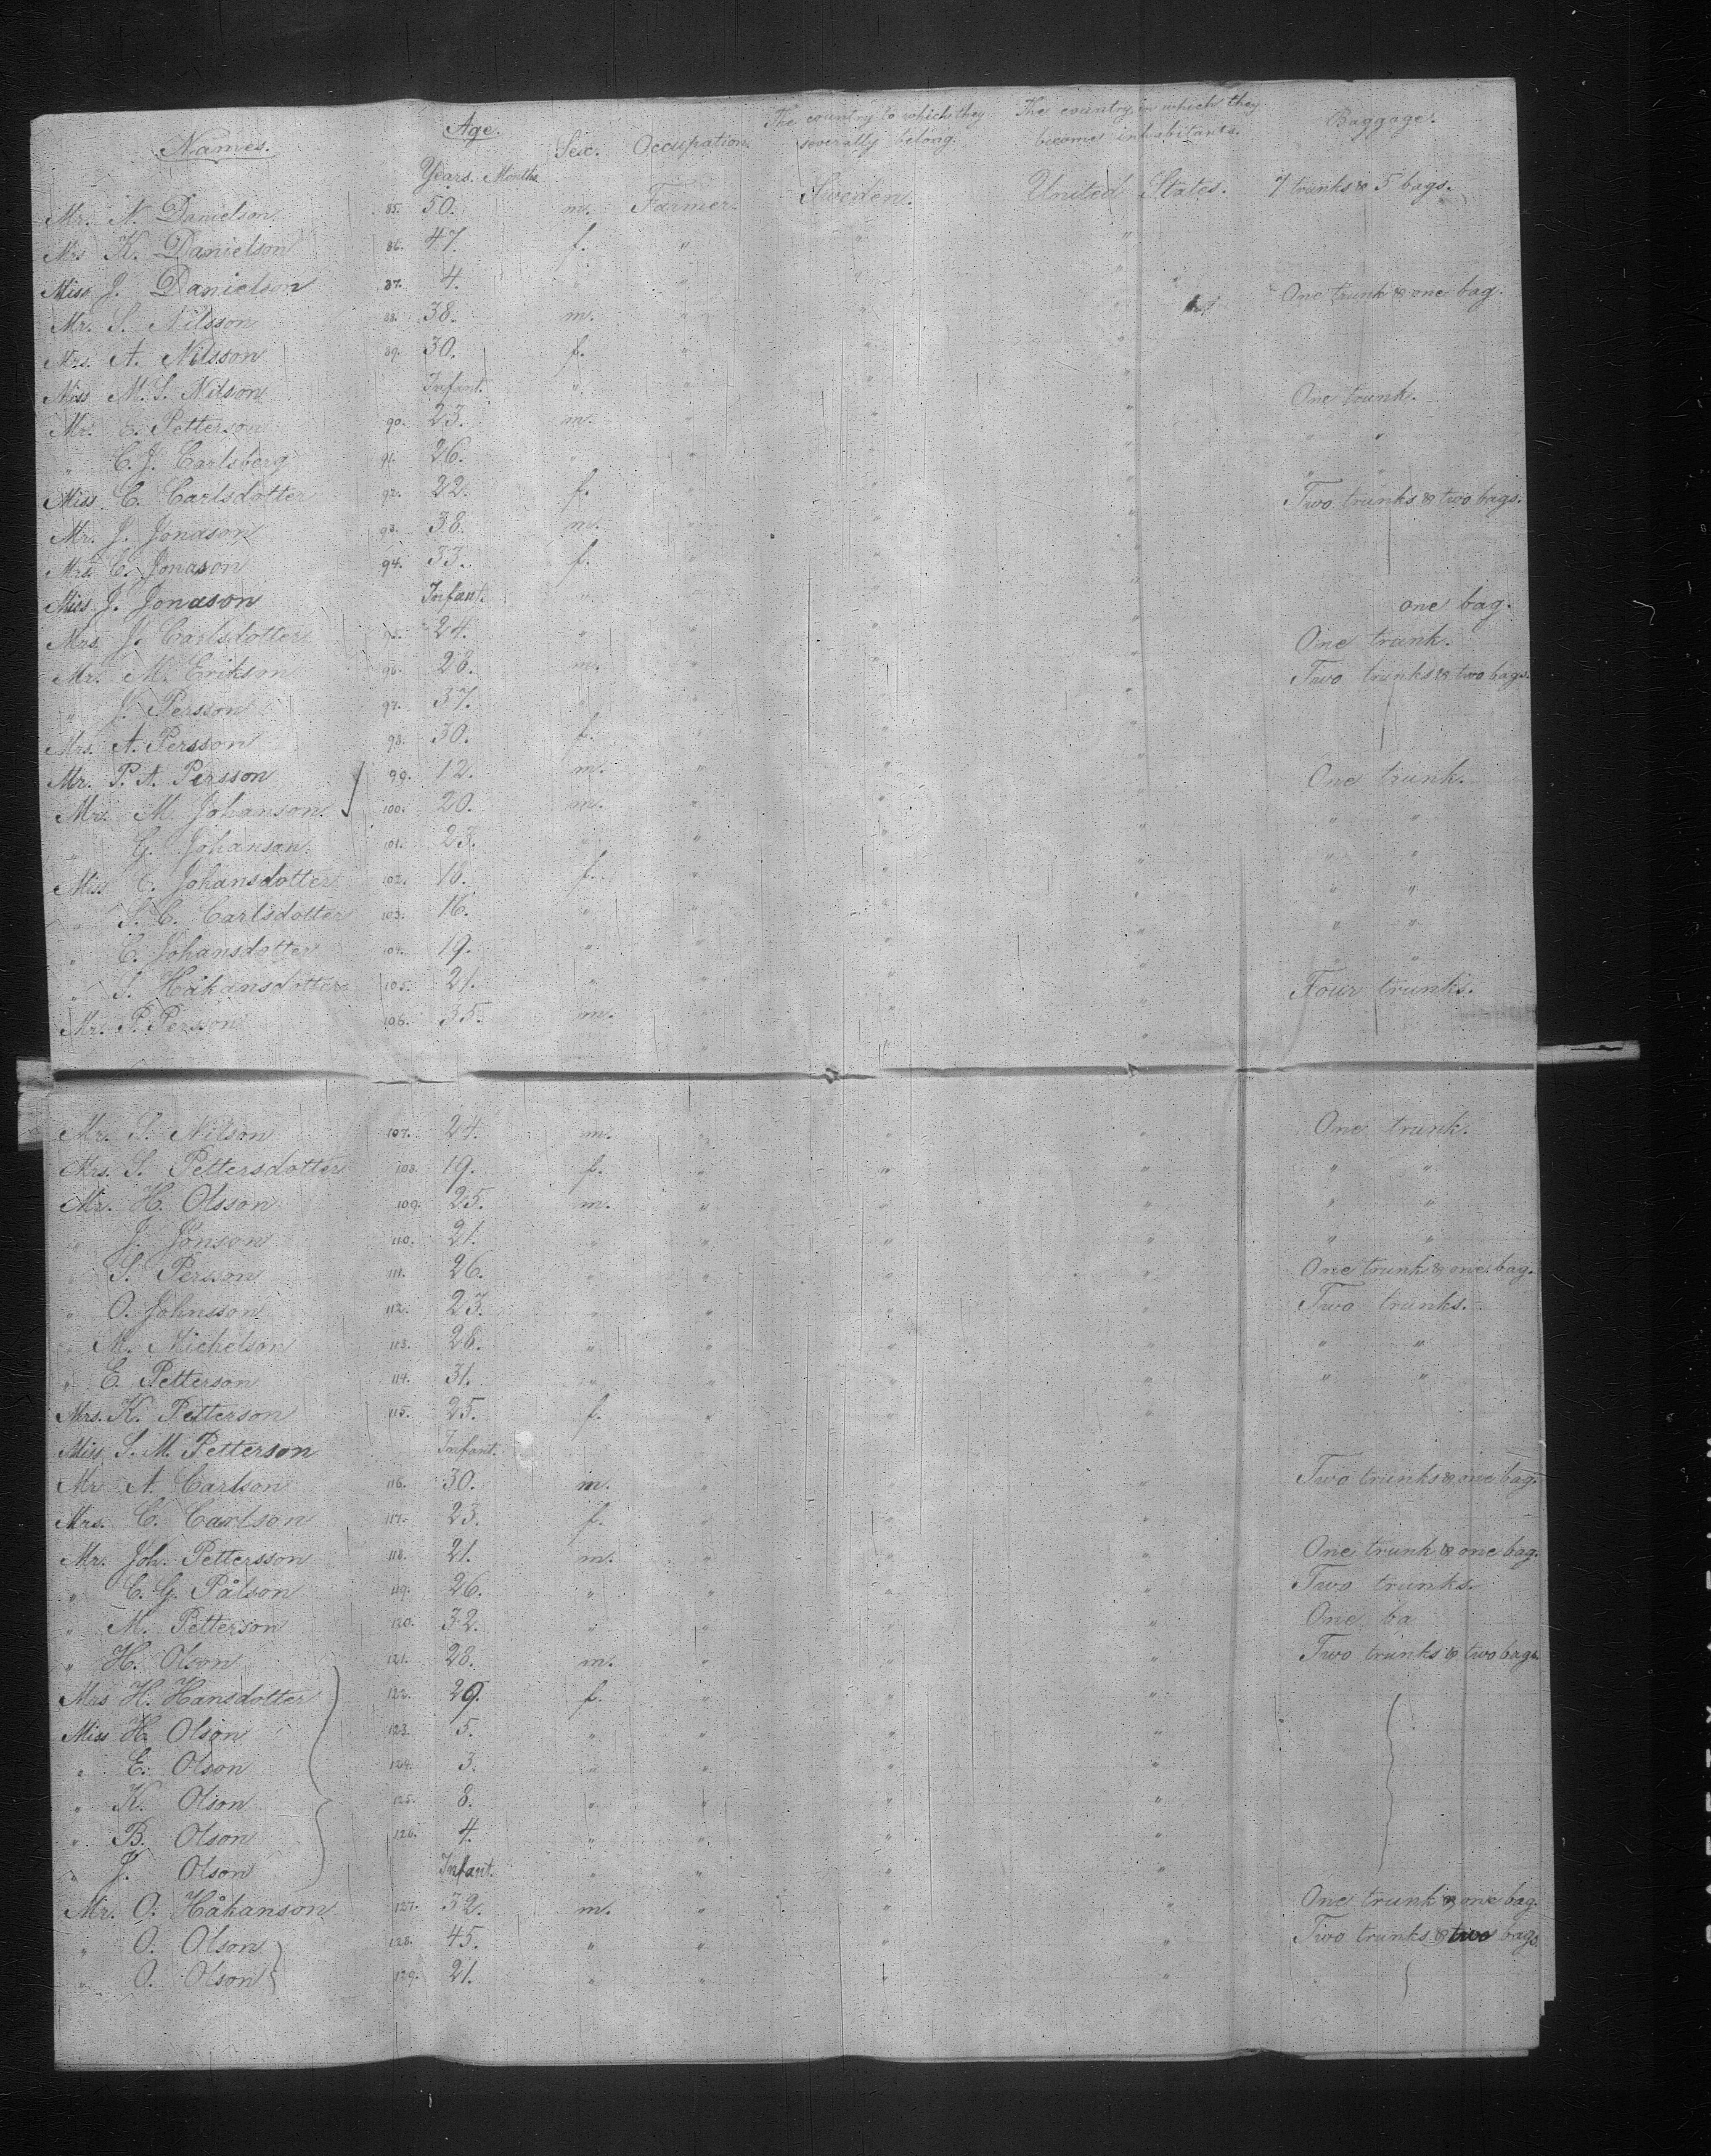 Names. Age. Sex. Occupation. The country to which they severally belong. The country in which they become inhabitants. Baggage.
Years. Months
Mr. N. Danielson 85. 50. m. Farmer. Sweden. United States. 7 trunks & 5 bags.
Mrs K. Danielson 86. 47. f. " " "
Miss J. Danielson 87. 4. " " " "
Mr. S. Nilsson 88. 38. m. " " " One trunk & one bag.
Mrs. A. Nilsson 89. 30. f. " " "
Miss M. S. Nilson Infant. " " " "
Mr. Petterson 90. 23. m. " " " One trunk.
" C. J. Carlsberg 91. 26. " " " " " "
Miss C. Carlsdotter 92. 22. f. " " " " "
Mr. J. Jonason 93. 38. m. " " " Two trunks & two bags.
Mrs C. Jonason 94. 33. f. " " "
Miss J. Jonason Infant. " " " "
Mrs. J. Carlsdotter 95. 24. " " " " one bag.
Mr. M. Erikson 96. 28. m. " " " One trunk.
" J. Persson 97. 37. " " " " Two trunks & two bags.
Mrs. A. Persson 98. 30. f. " " "
Mr. P. A. Persson 99. 12. m. " " "
Mr. M. Johanson. 100. 20. m. " " " One trunk.
" G. Johanson. 101. 23. " " " " " "
Miss C. Johansdotter 102. 18. f. " " " " "
" S. C. Carlsdotter 103. 16. " " " " " "
" C. Johansdotter 104. 19. " " " " " "
" S. Håkansdotter 105. 21. " " " " " "
Mr. P. Persson 106. 35. m. " " " Four trunks.
Mr. S. Nilson 107. 24. m. " " " One trunk.
Mrs. S. Pettersdotter 108. 19. f. " " " " "
Mr. H. Olsson 109. 25. m. " " " " "
" J. Jonson 110. 21. " " " " " "
" S. Persson 111. 26. " " " " One trunk & one bag.
" O. Johnsson. 112. 23. " " " " Two trunks.
" M. Michelson 113. 28. " " " " " "
" E. Petterson 114. 31. " " " " " "
Mrs. K. Petterson 115. 25. f. " " "
Miss S. M. Petterson Infant.
Mr A. Carlson 116. 30. m. " " " Two trunks & one bag.
Mrs. C. Carlson 117. 23. f. " " "
Mr. Joh. Pettersson 118. 21. m. " " " One trunk & one bag.
" C. G. Pålson 119. 26. " " " " Two trunks.
" M. Petterson 120. 32. " " " " One ba
" H. Olson 121. 28. m. " " " Two trunks & two bags.
Mrs H. Hansdotter 122. 29. f. " " "
Miss H. Olson 123. 5. " " " "
" E. Olson 124. 3. " " " "
" K. Olson 125. 8. " " " "
" B. Olson 126. 4. " " " "
" J. Olson Infant. " " " "
Mr. O. Håkanson 127. 32. m. " " " One trunk & one bag.
" O. Olson 128. 45. " " " " Two trunks & two bags
" O. Olson 129. 21. " " " "